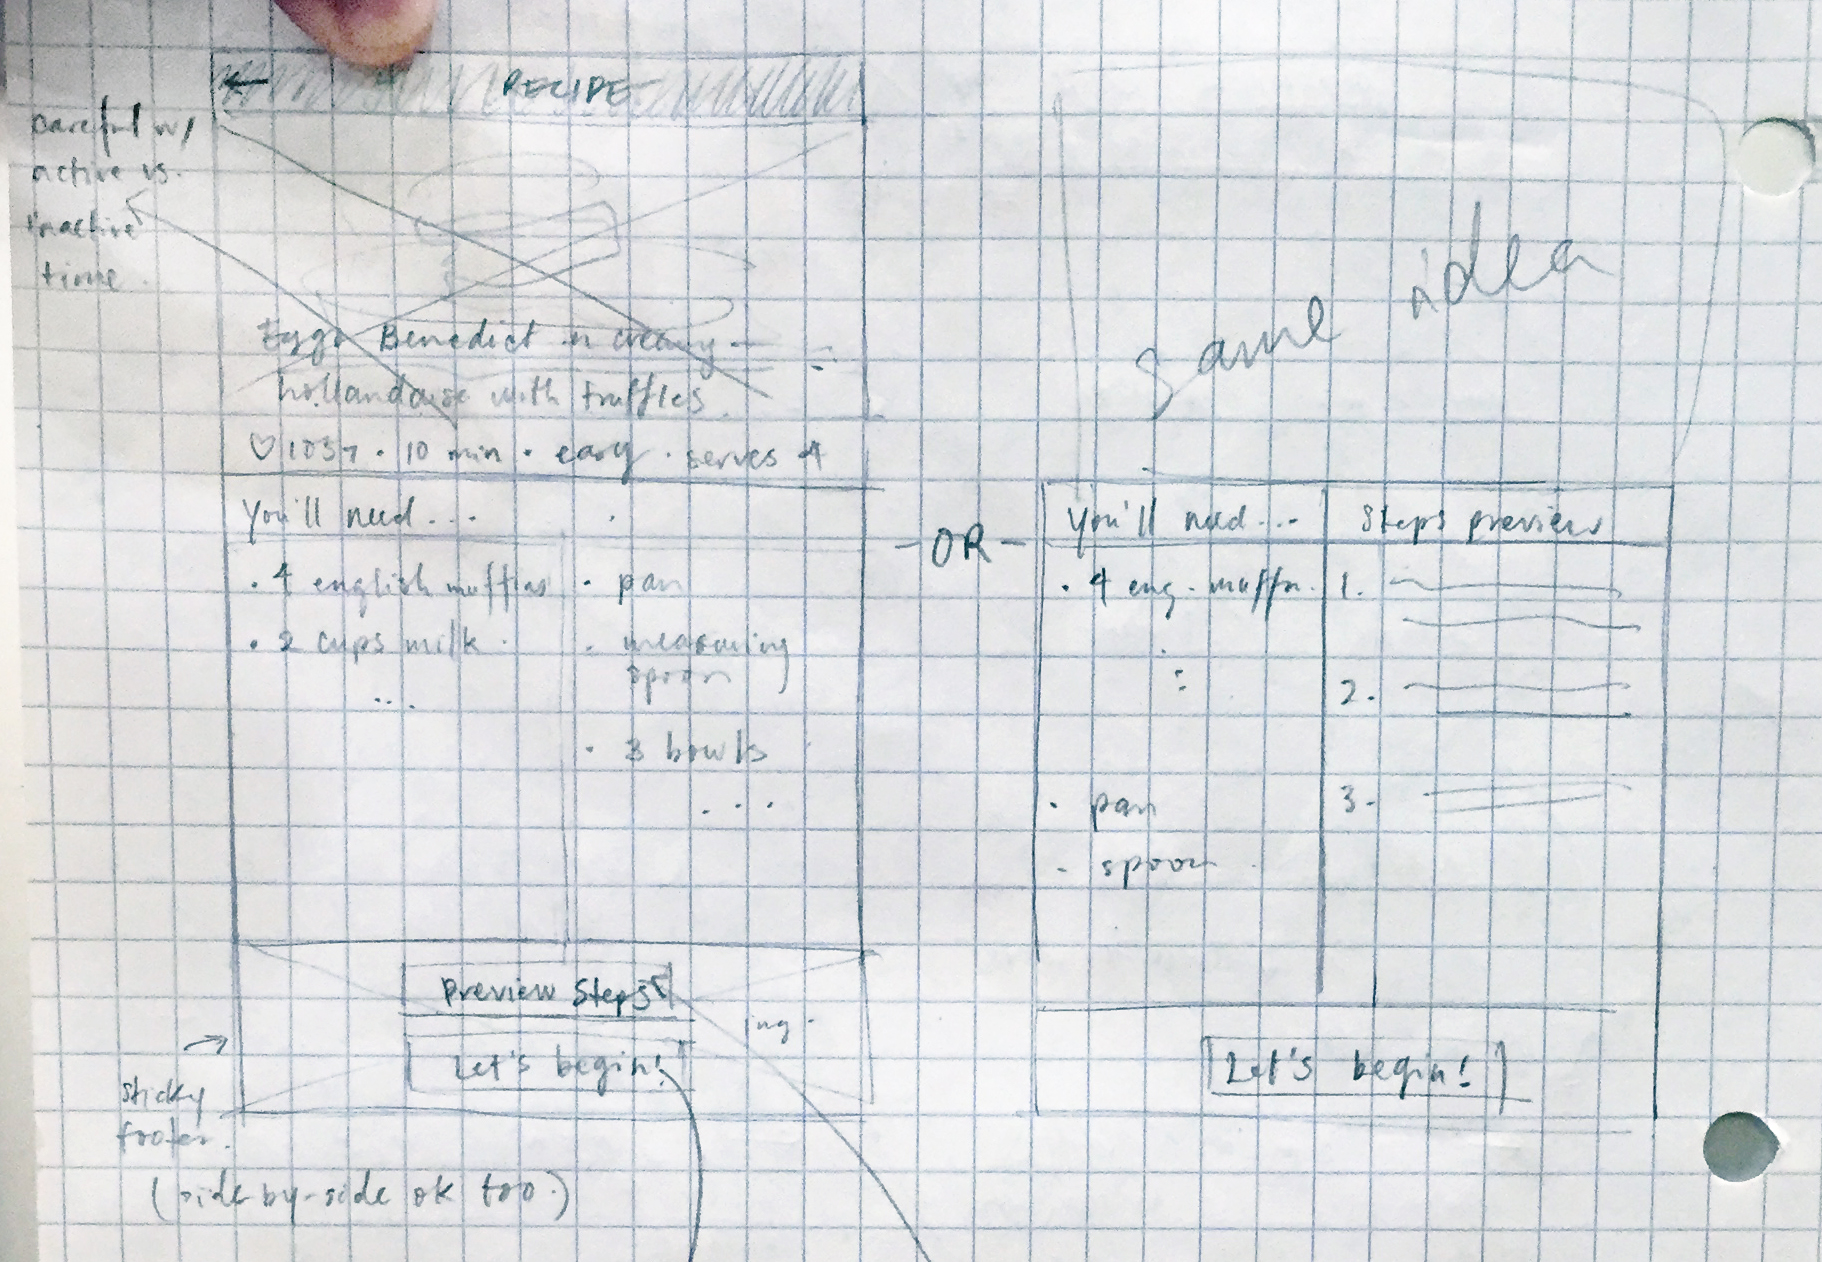 ← RECIPE
careful w/
active vs.
inactive
time.
Eggs Benedict in creamy
hollandaise with truffles
♡ 1037 · 10 min · easy · serves 4
You'll need...
· 4 english muffins
· 2 cups milk
...
· pan
· measuring
spoon
· 3 bowls
...
Preview Steps
Let's begin!
ing.
→
sticky
footer.
(side-by-side ok too.)
- OR -
same idea
You'll need...
· 4 eng. muffn.
· pan
- spoon
Steps preview
1.
2.
3.
Let's begin!